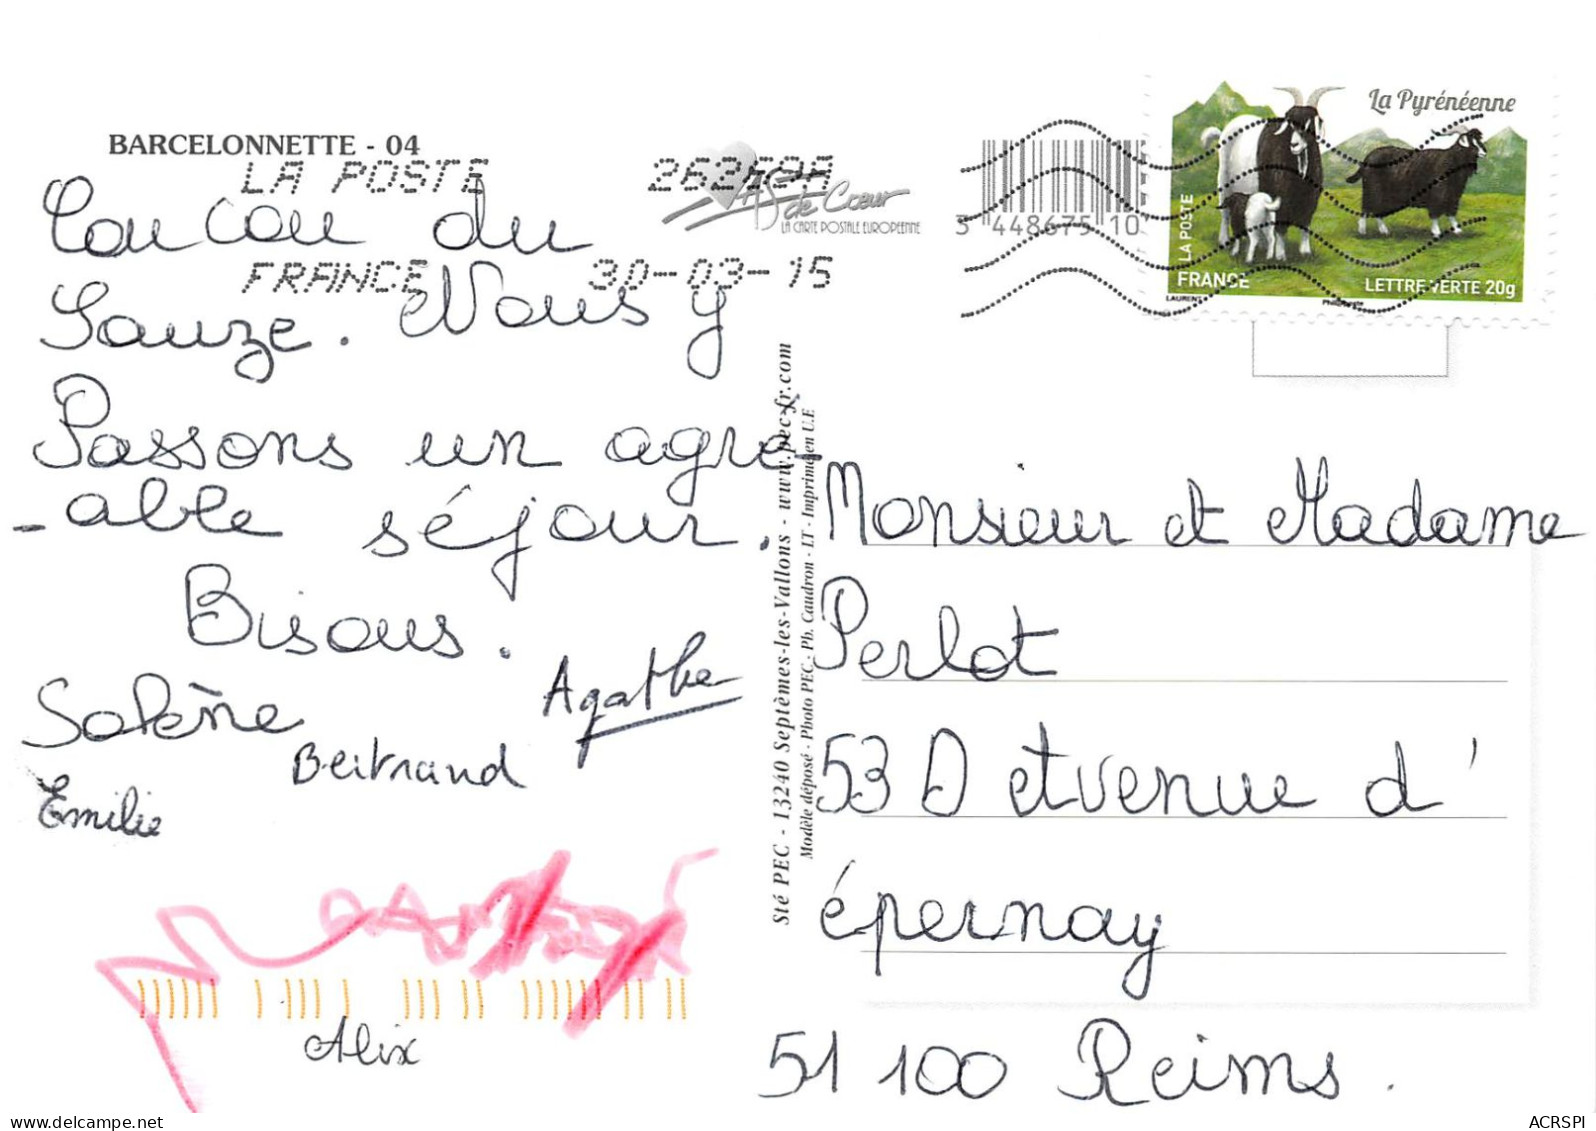 BARCELONNETTE - 04
LA POSTE
FRANCE
30-03-15
de Cœur
LA CARTE POSTALE EUROPEENNE
3 448675 10
La Pyrénéenne
LA POSTE
FRANCE
LETTRE VERTE 20g
Coucou du
Sauze. Nous y
Passons un agré-
-able séjour.
Bisous.
Agathe
Solène
Bertrand
Emilie
Alix
Sté PEC - 13240 Septèmes-les-Vallons - www.pec-fr.com
Modèle déposé - Photo PEC - Ph. Caudron - LT - Imprimé en U.E
Monsieur et Madame
Perlot
53 D etvenue d'
épernay
51 100 Reims.
www.delcampe.net
ACRSPI